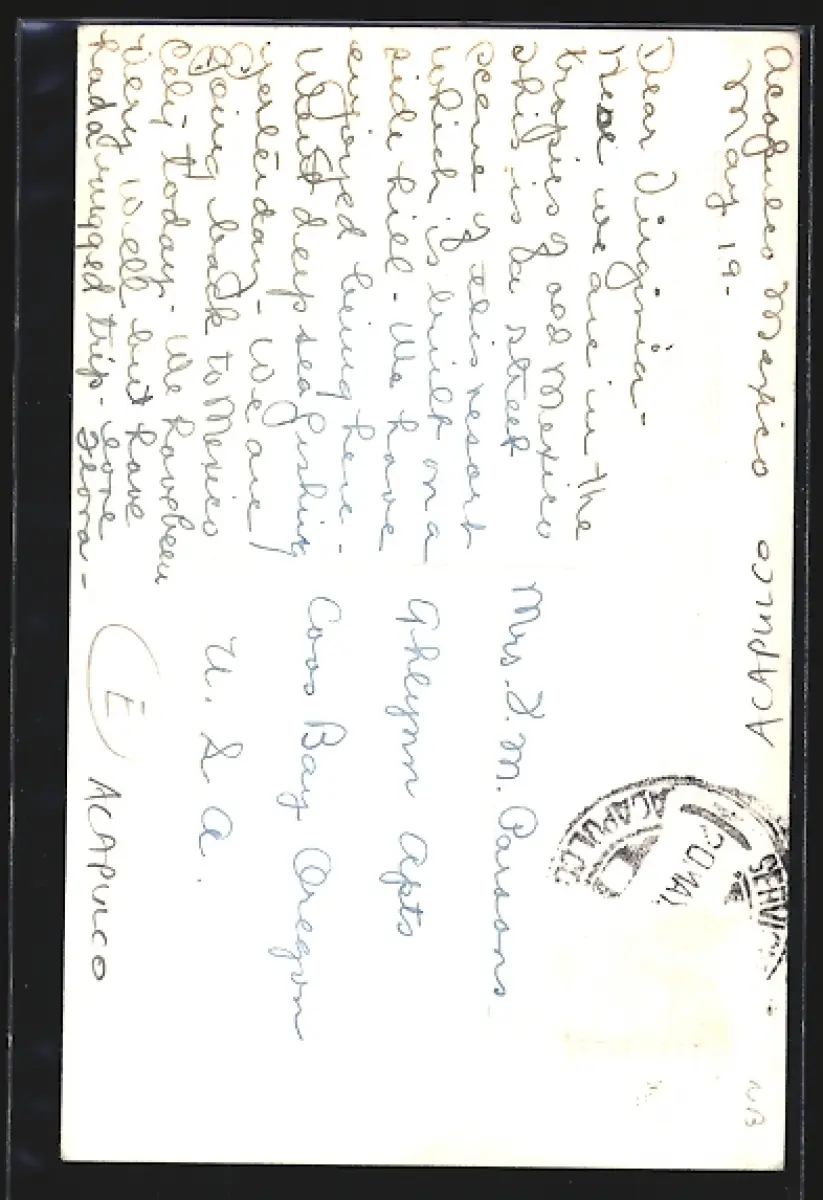 Acapulco Mexico
May 19-
Dear Virginia-
Here we are in the
tropics of old Mexico
this is a street
scene of this resort
which is built on a
side hill - We have
enjoyed being here -
Went deep sea fishing
yesterday - We are
going back to Mexico
City today - We have been
very well but have
had a rugged trip - Love
Flora -
ACAPULCO
Mrs. F. M. Parsons
Ghlynn Apts
Coos Bay Oregon
U. S. A.
E ACAPULCO
ACAPULCO
20 MAY
SERVI
NB